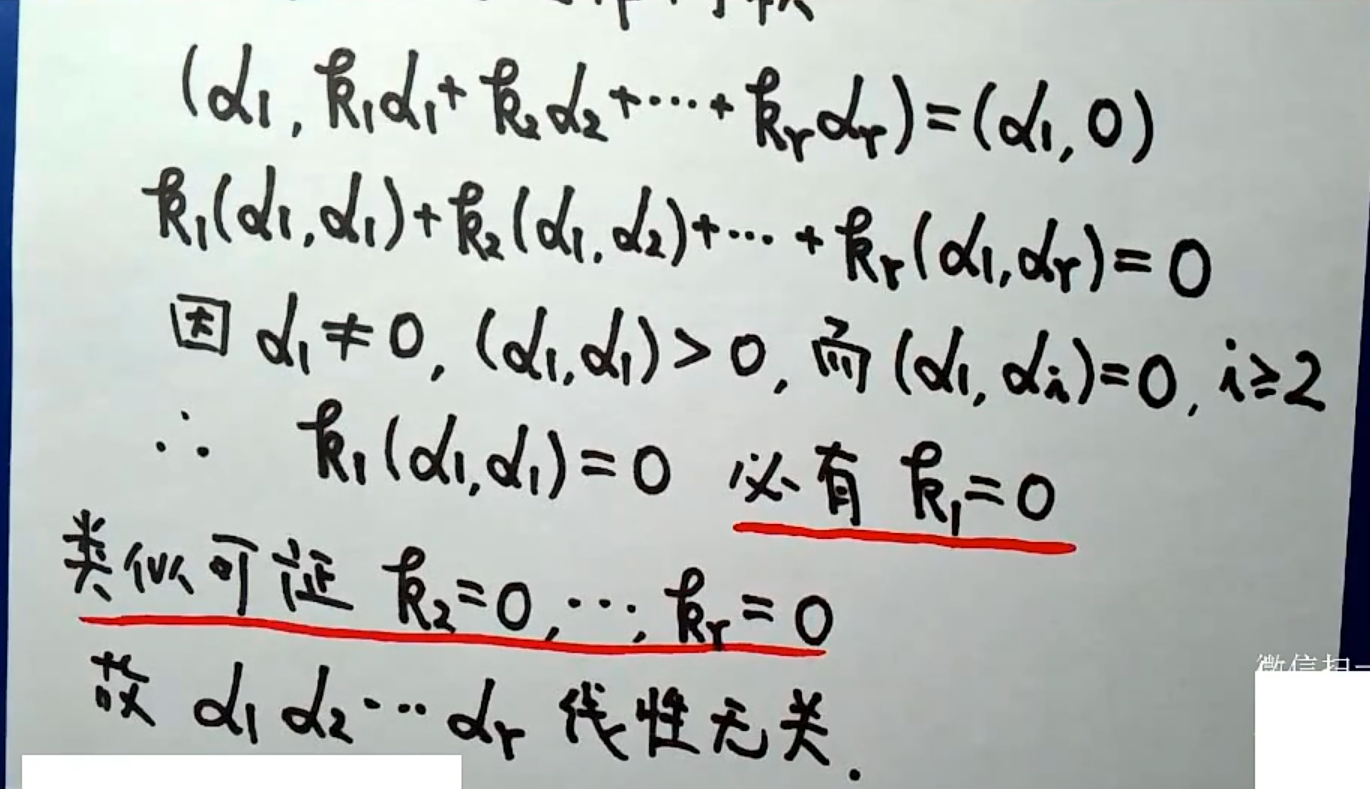 (α₁, k₁α₁+k₂α₂+⋯+kᵣαᵣ)=(α₁, 0)
k₁(α₁,α₁)+k₂(α₁,α₂)+⋯+kᵣ(α₁,αᵣ)=0
因 α₁≠0, (α₁,α₁)>0, 而 (α₁,αᵢ)=0, i≥2
∴ k₁(α₁,α₁)=0 必有 k₁=0
类似可证 k₂=0,⋯,kᵣ=0
故 α₁ α₂⋯αᵣ 线性无关.
微信扫